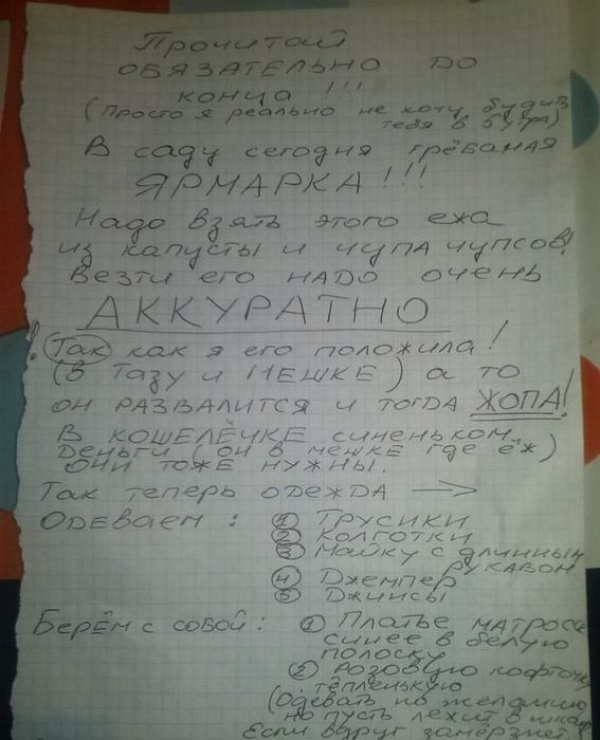 Прочитай
ОБЯЗАТЕЛЬНО ДО
КОНЦА !!!
(Просто я реально не хочу будить
тебя в 6 утра)
В саду сегодня грёбаная
ЯРМАРКА!!!
Надо взять этого ежа
из капусты и чупа чупсов!
Везти его НАДО очень
АККУРАТНО
! Так как я его положила!
(В Тазу и МЕШКЕ) а то
он РАЗВАЛИТСЯ и тогда ЖОПА!
В КОШЕЛЁЧКЕ синеньком
Деньги (он в мешке где ёж)
они тоже нужны.
Так теперь одежда →
Одеваем: ① Трусики
② Колготки
③ Майку с длинным
рукавом
④ Джемпер
⑤ Джинсы
Берём с собой: ① Платье матроска
синее в белую
полоску
② розовую кофточку
тёпленькую
(Одевать по желанию
но пусть лежит в шкафу
Если вдруг замёрзнет